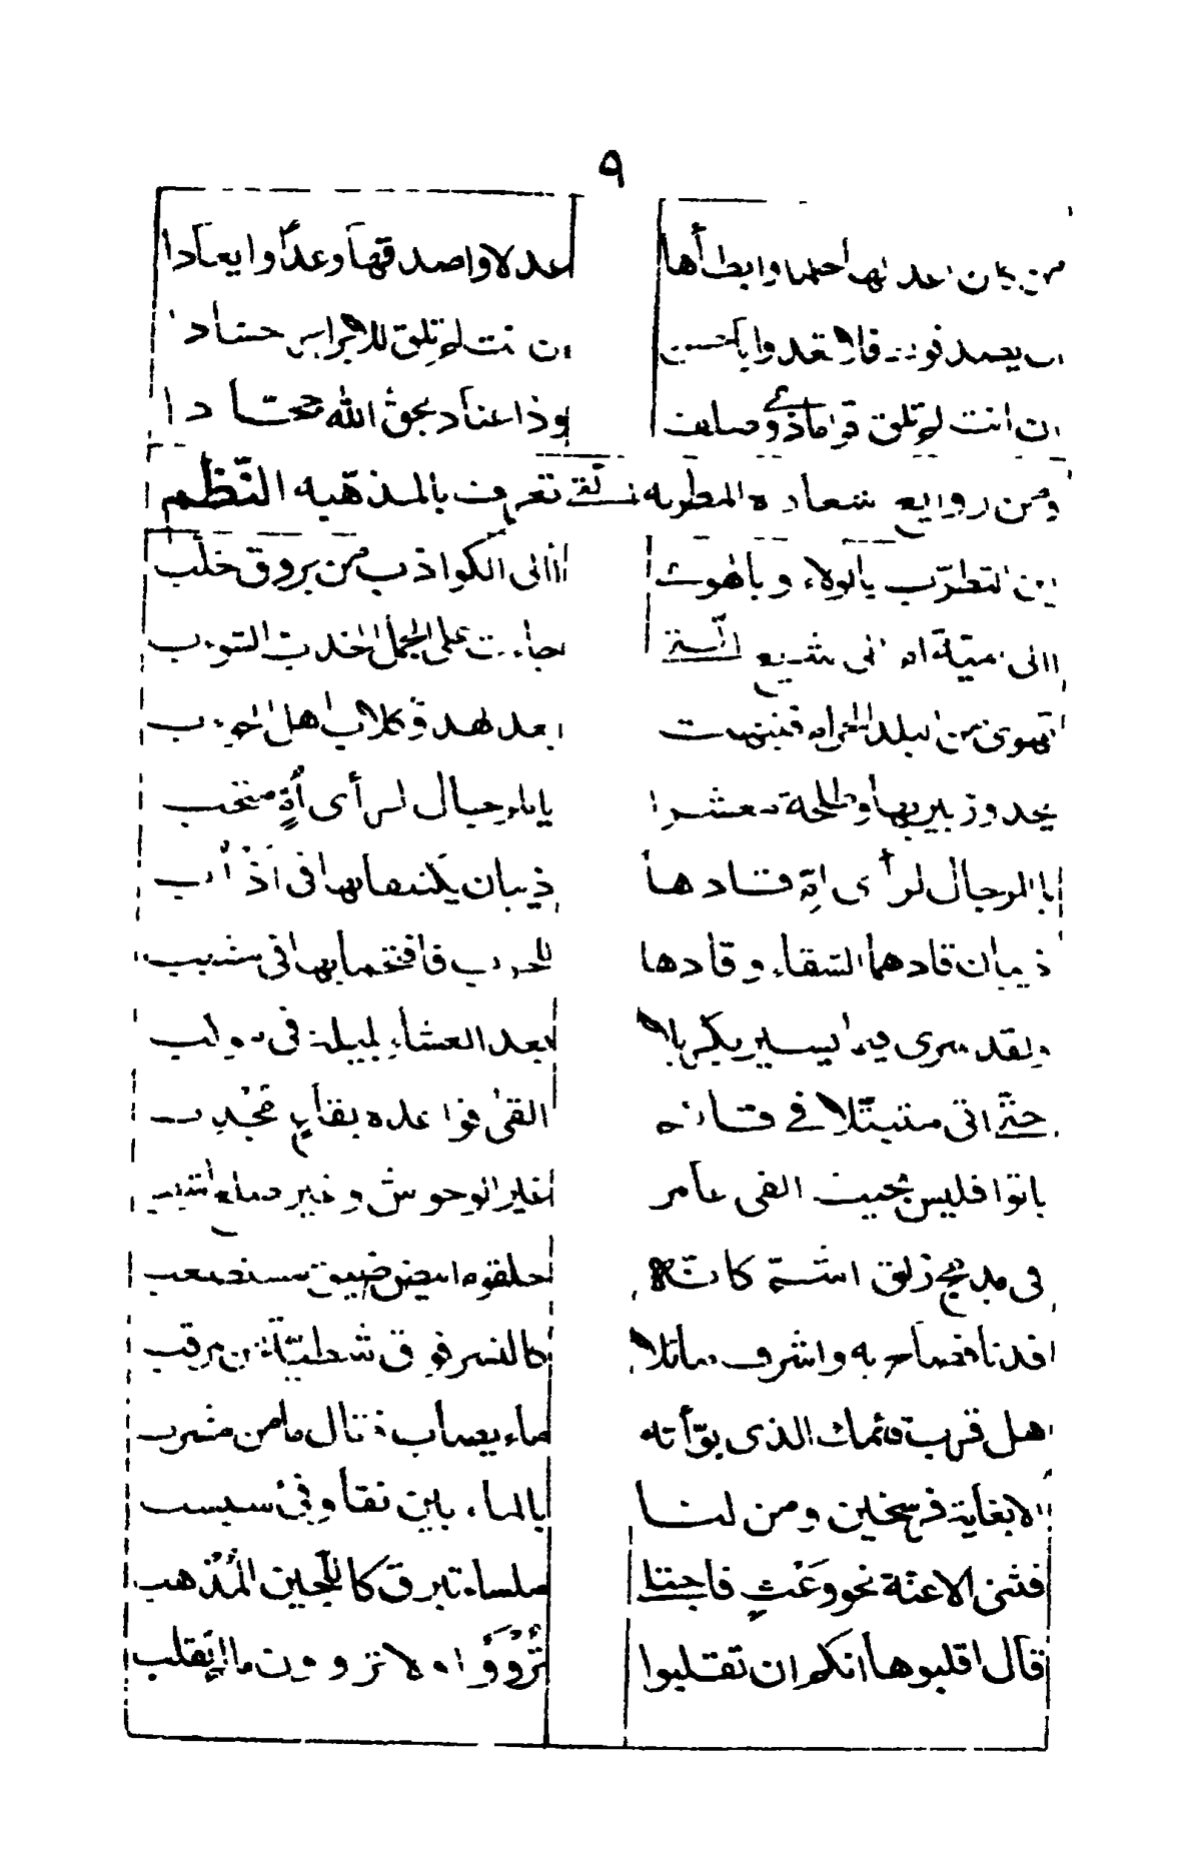 ٩
من كان اعدلها حكما وابطأها عدلا واصدقها وعدا وايعادا
ان يصدفونك فلا تعدوا باحسن ان انت لم تلق للابرار حسادا
ان انت لم تلق قوماذوى صلف وذا عناد بحق الله جحادا
ومن روايع المطربه التى تعرف بالمذهبه النظم
اين التطرب بالولاء وبالهوى أالى الكواذب من بروق خلب
االى امية ام الى شيع التى جاءت على الجمل الخدب الشوقب
تهوى من البلد الحرام فنبهت بعد الهدو كلاب اهل الحوءب
يحدو زبير بها وطلحة عسكرا يا للرجال لرأى أم منجب
يا للرجال لرأى ام قادها ذيبان يكتنفانها فى أذؤب
ذيبان قادهما الشقاء وقادها للحين فاقتحما بها فى منشب
ولقد سرى فيما يسير بكربلا بعد العشاء لليلة فى موكب
حتى اتى متبتلا فى قائم القى قواعده بقاع مجدب
باتوا فليس بحيث القى عامر غير الوحوش وغير صلع اشيب
فى مدمج زلق اشم كانه حلقوم ابيض ضيق مستصعب
فدنا فصاح به واشرف ماثلا كالنسر فوق شظية من مرقب
هل قرب قائمك الذى بوأته ماء يصاب فقال ما من مشرب
الا بغاية فرسخين ومن لنا بالماء بين نقا وقى سبسب
فثنى الاعنة نحو وَعْثٍ فاجتلى ملساء تبرق كاللجين المُذْهب
قال اقلبوها انكم ان تقلبوا تُرْوَوْا ولا تروون ما لم تقلب